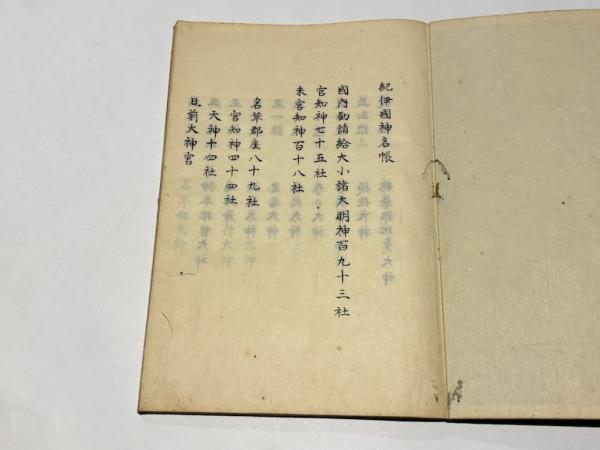 紀伊國神名帳
國内勧請給大小諸大明神百九十三社
官知神七十五社
未官知神百十八社
名草郡座八十九社
官知神四十四社
天神十四社
日前大神宮